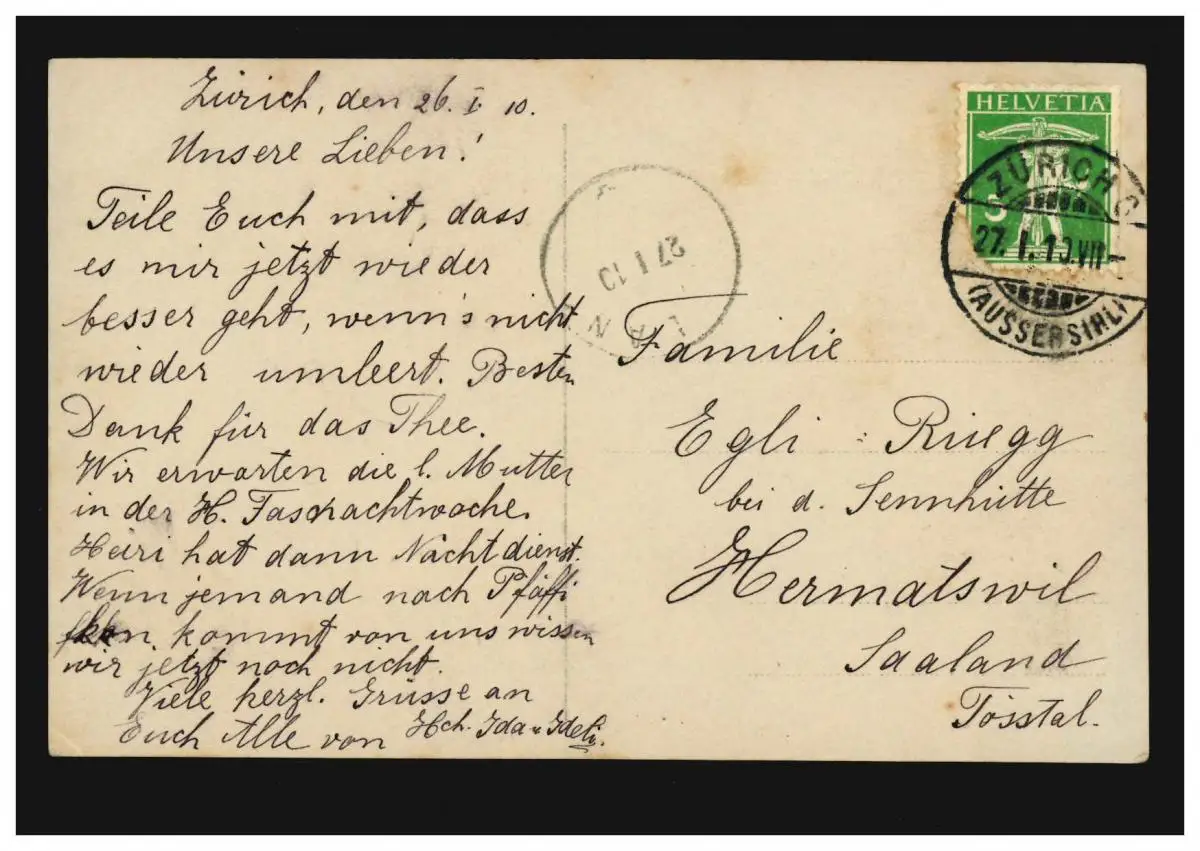 Zürich, den 26. I. 10.
Unsere Lieben!
Teile Euch mit, dass
es mir jetzt wieder
besser geht, wenn's nicht
wieder umleert. Besten
Dank für das Thee.
Wir erwarten die l. Mutter
in der H. Fasnachtwoche.
Heiri hat dann Nachtdienst.
Wenn jemand nach Pfäffi
kon kommt von uns wissen
wir jetzt noch nicht.
Viele herzl. Grüsse an
Euch Alle von Hch. Ida u. Ideli.
27 I 10
HELVETIA
ZÜRICH 6
27. I. 10. VII
(AUSSERSIHL)
Familie
Egli : Rüegg
bei d. Sennhütte
Hermatswil
Saaland
Tösstal.